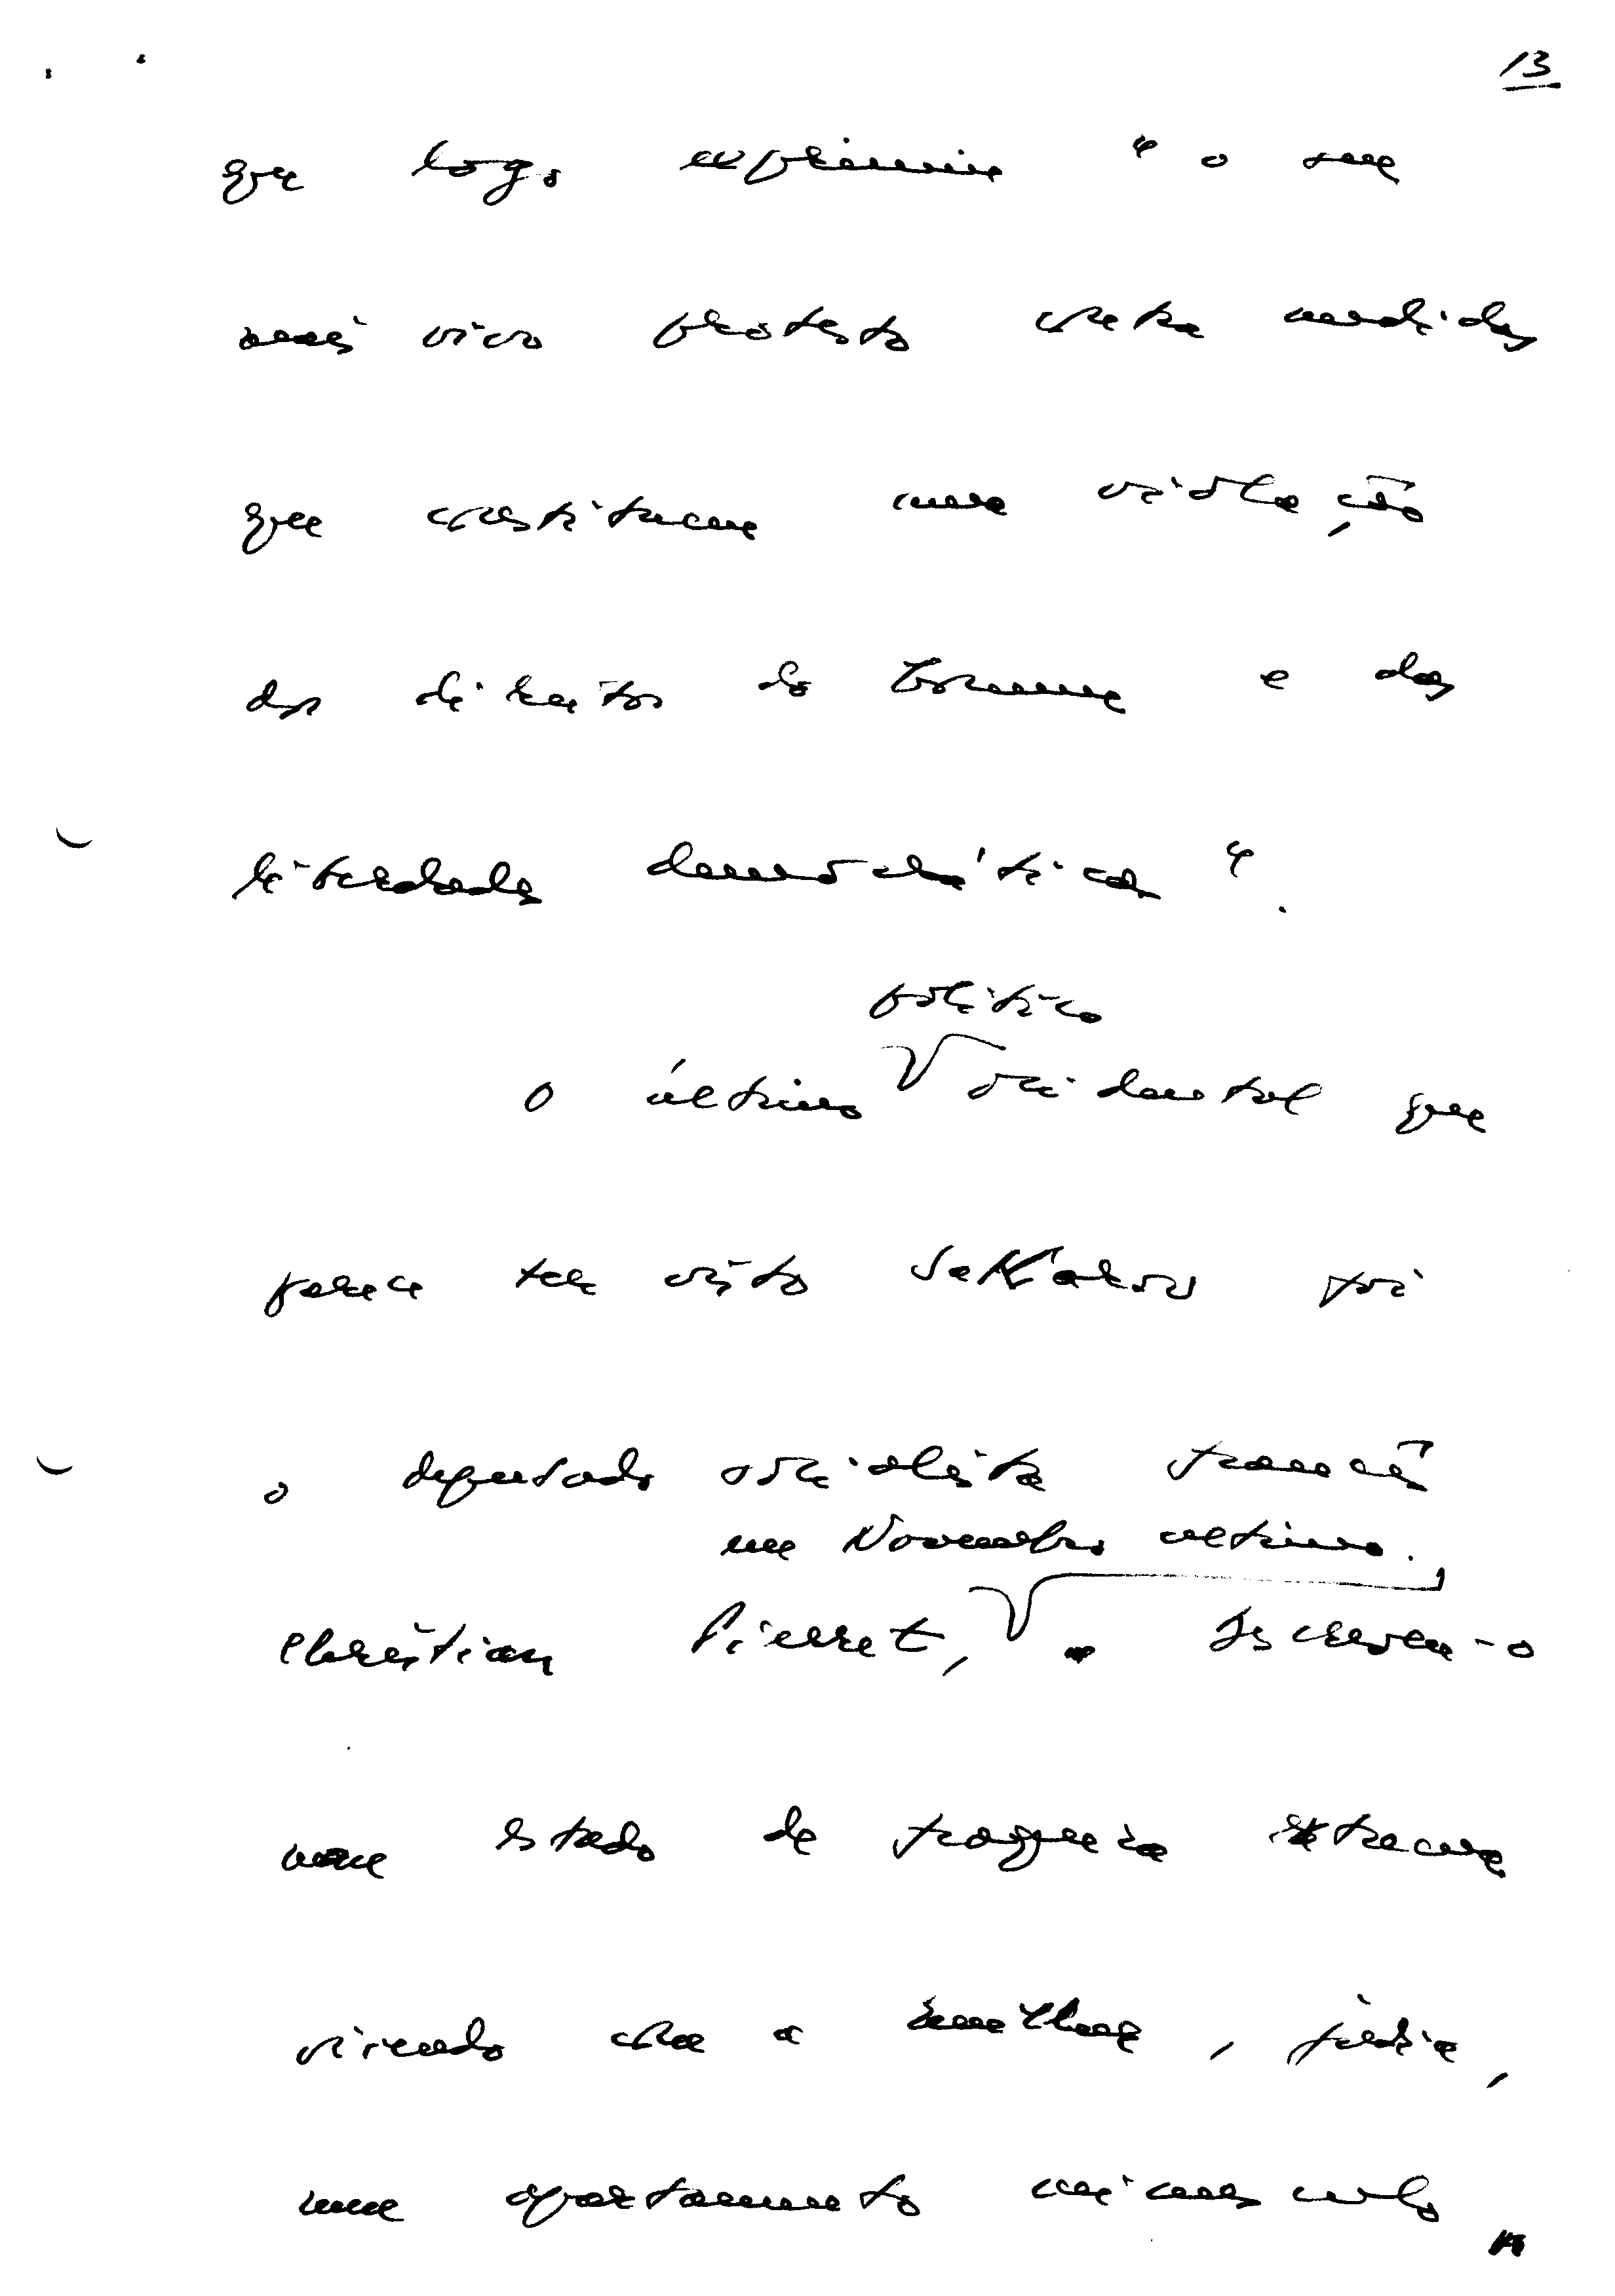 13
que logo exprimiu " o seu
mais vivo protesto contra medidas
que constituem uma violação
dos direitos do homem e das
liberdades democráticas ".
político
O último ocidental que
parece ter visto Sakharov foi
o deputado socialista francês
em Novembro último.
Christian Pierret, . Descreveu-o
num estado de fraqueza extrema
vivendo com a mulher, judia,
num apartamento minúsculo